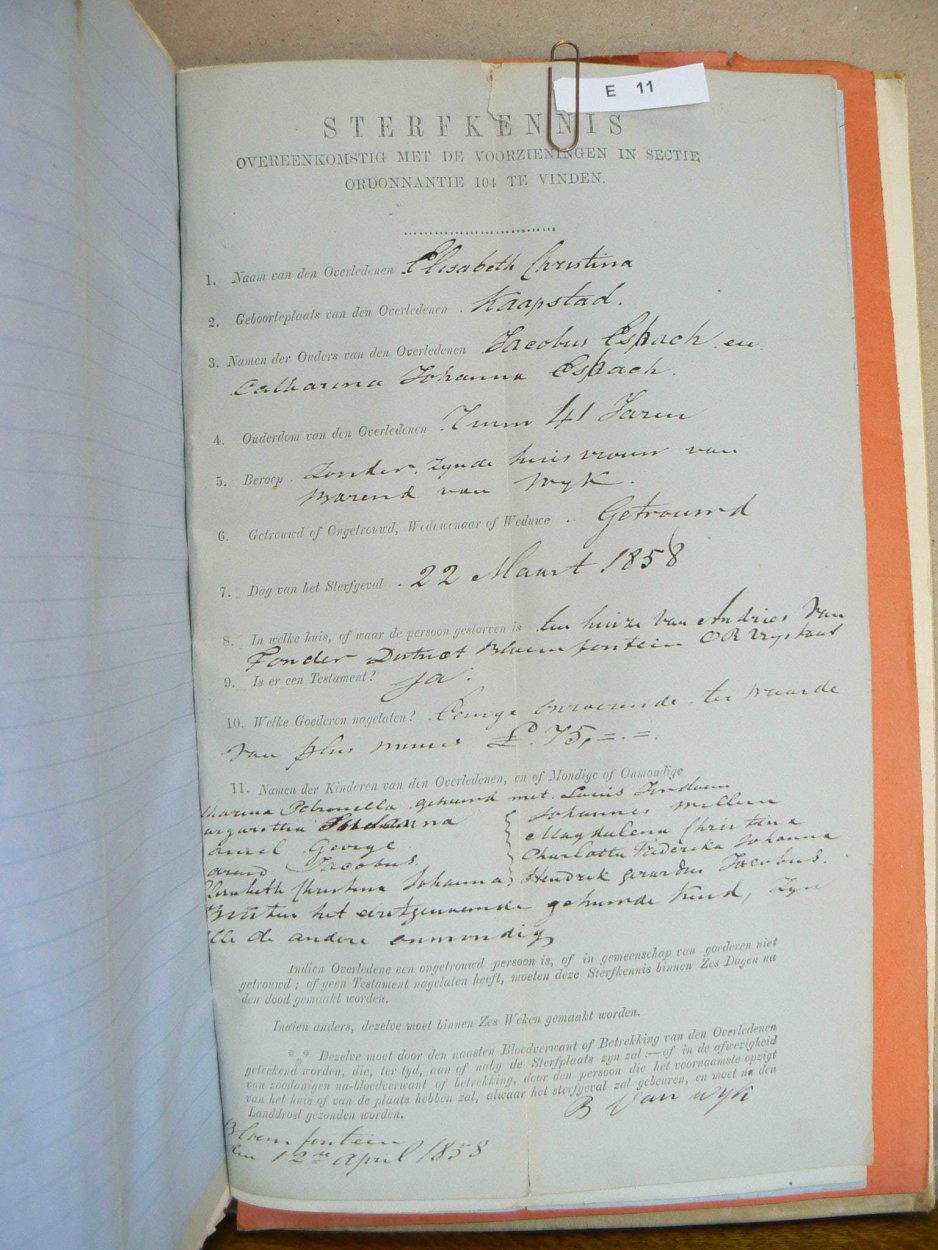 E 11
STERFKENNIS
OVEREENKOMSTIG MET DE VOORZIENINGEN IN SECTIE
ORDONNANTIE 104 TE VINDEN.
1. Naam van den Overledenen Elisabeth Christina
2. Geboorteplaats van den Overledenen . Kaapstad.
3. Namen der Ouders van den Overledenen Jacobus Espach en
Catharina Johanna Espach.
4. Ouderdom van den Overledenen . Ruim 41 Jaren
5. Beroep . Zonder, zynde huisvrouw van
Barend van Wyk.
6. Getrouwd of Ongetrouwd, Wedewenaar of Weduwe . . Getrouwd
7. Dag van het Sterfgeval . 22 Maart 1858
8. In welke huis, of waar de persoon gestorven is ten huize van Andries van
Tonder District Bloemfontein OR Vrystaat
9. Is er een Testament? Ja.
10. Welke Goederen nagelaten? Eenige onroerende ter waarde
van plus minus £ 75,=.=.
11. Namen der Kinderen van den Overledenen, en of Mondige of Onmondige
tharina Petronella gehuwd met Louis Jordaan
argaretha
Johannes Willem
George
Magdalena Christina
arend Jacobus.
Charlotta Frederika Johanna
Elisabeth Christina Johanna
Hendrik Gerardus Jacobus.
Buiten het eerstgenoemde gehuwde kind, zyn
lle de andere onmondig
Indien Overledene een ongetrouwd persoon is, of in gemeenschap van goederen niet
getrouwd; of geen Testament nagelaten heeft, moeten deze Sterfkennis binnen Zes Dagen na
den dood gemaakt worden.
Indien anders, dezelve moet binnen Zes Weken gemaakt worden.
*** Dezelve moet door den naasten Bloedverwant of Betrekking van den Overledenen
geteekend worden, die, ter tyd, aan of naby de Sterfplaats zyn zal :—of in de afwezigheid
van zoodanigen na-bloedverwant of betrekking, door den persoon die het voornaamste opzigt
van het huis of van de plaats hebben zal, alwaar het sterfgeval zal gebeuren, en moet na den
Landdrost gezonden worden.
B van Wyk
Bloemfontein
den 12de April 1858